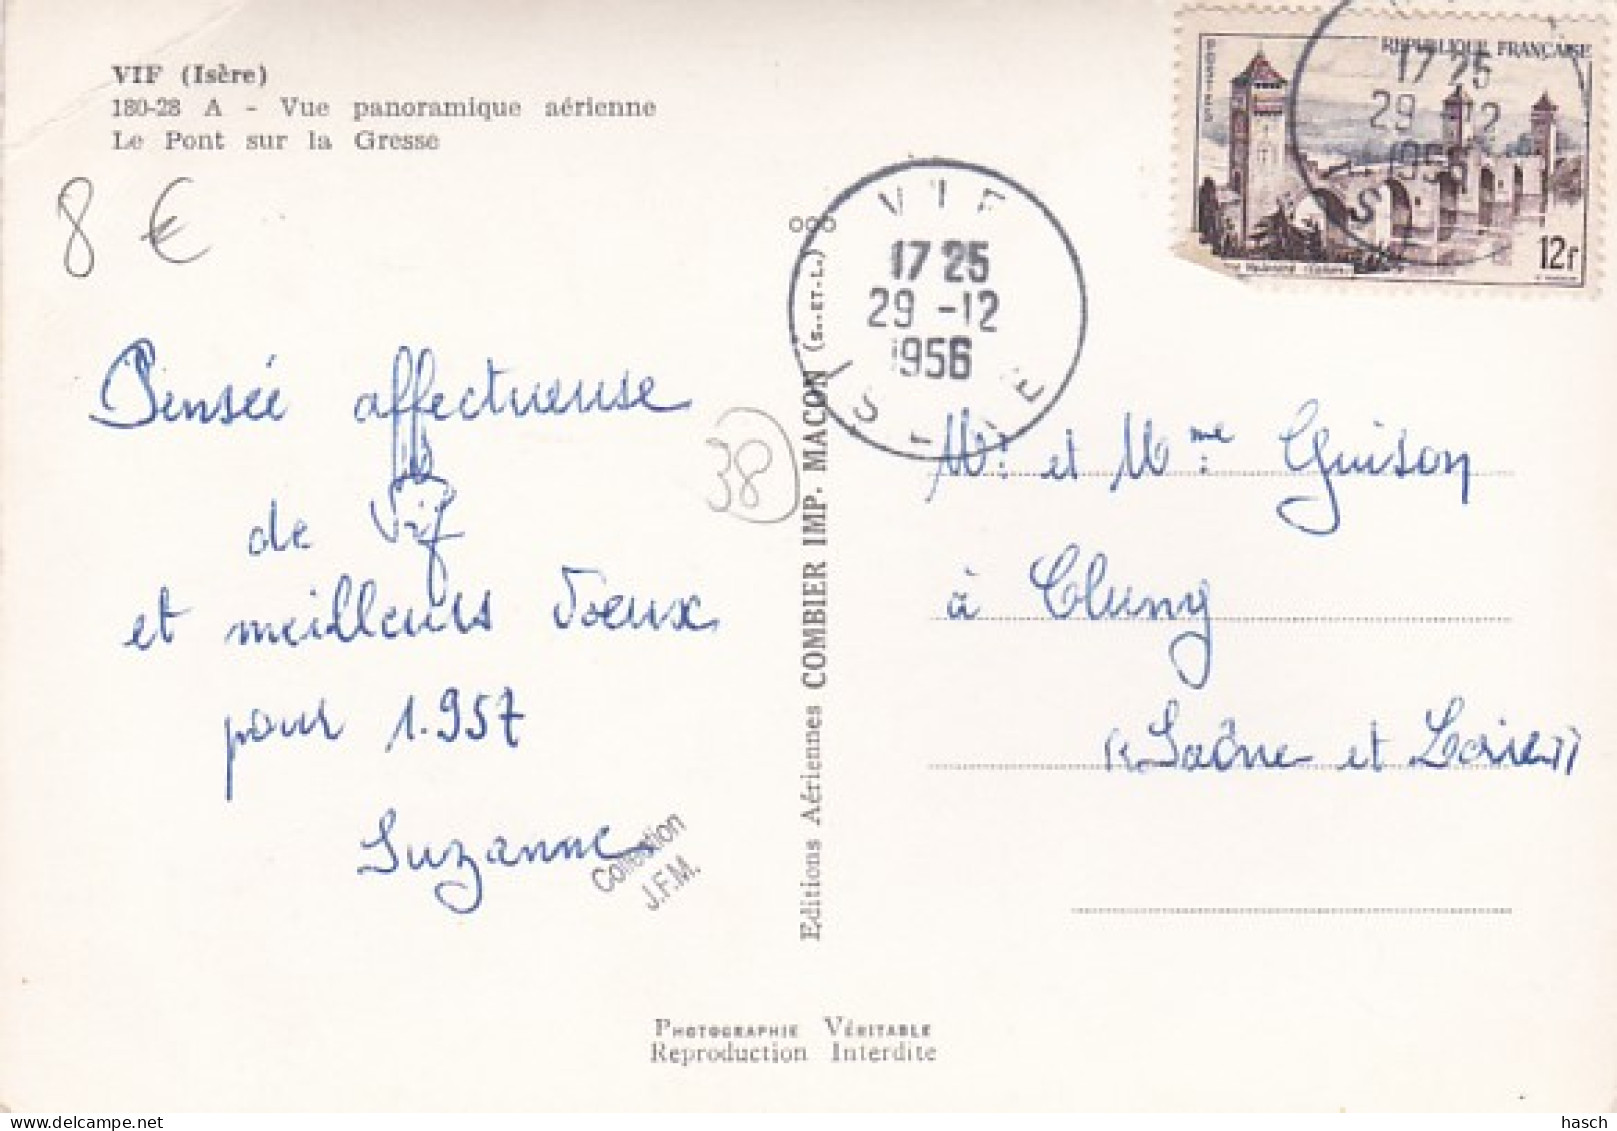 VIF (Isère)
180-28 A - Vue panoramique aérienne
Le Pont sur la Gresse
8 €
Pensée affectueuse
de Vif
et meilleurs Voeux
pour 1.957
Suzanne
Collection
J.F.M.
38
Editions Aériennes COMBIER IMP. MACON (S.-ET-L.)
VIF
17 25
29 -12
1956
ISERE
REPUBLIQUE FRANÇAISE
17 25
29 -12
1956
12f
Mr. et Mme. Guison
à Cluny
(Saône et Loire)
PHOTOGRAPHIE VÉRITABLE
Reproduction Interdite
hasch